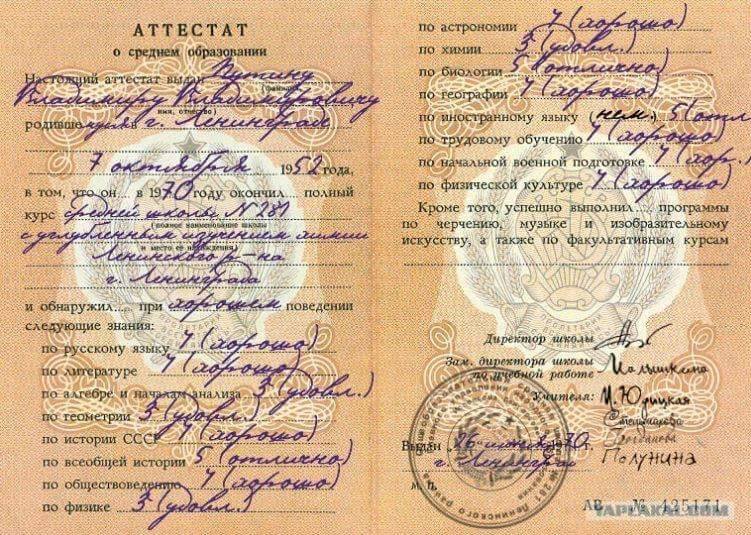 АТТЕСТАТ
о среднем образовании
Настоящий аттестат выдан Путину
(фамилия)
Владимиру Владимировичу
имя, отчество)
родившемуся в г. Ленинград
7 октября 1952 года,
в том, что он в 1970 году окончил полный
курс средней школы № 281
(полное наименование школы
с углубленным изучением химии
и место ее нахождения)
Ленинского р-на
г. Ленинграда
и обнаружил при хорошем поведении
следующие знания:
по русскому языку 4 (хорошо)
по литературе 4 (хорошо)
по алгебре и началам анализа 3 (удовл.)
по геометрии 3 (удовл.)
по истории СССР 4 (хорошо)
по всеобщей истории 5 (отлично)
по обществоведению 4 (хорошо)
по физике 3 (удовл.)
по астрономии 4 (хорошо)
по химии 3 (удовл.)
по биологии 5 (отлично)
по географии 4 (хорошо)
по иностранному языку (нем.) 5 (отл
по трудовому обучению 4 (хорошо)
по начальной военной подготовке 4 (хор.)
по физической культуре 4 (хорошо)
Кроме того, успешно выполнил программы
по черчению, музыке и изобразительному
искусству, а также по факультативным курсам
Директор школы
Зам. директора школы
по учебной работе Малышкина
Учителя: М. Юрицкая
Стельмахова
Богданова
Полунина
Выдан 26 1970 г.
г. Ленинград
м. п.
АВ № 425171
YAPLAKAL.COM